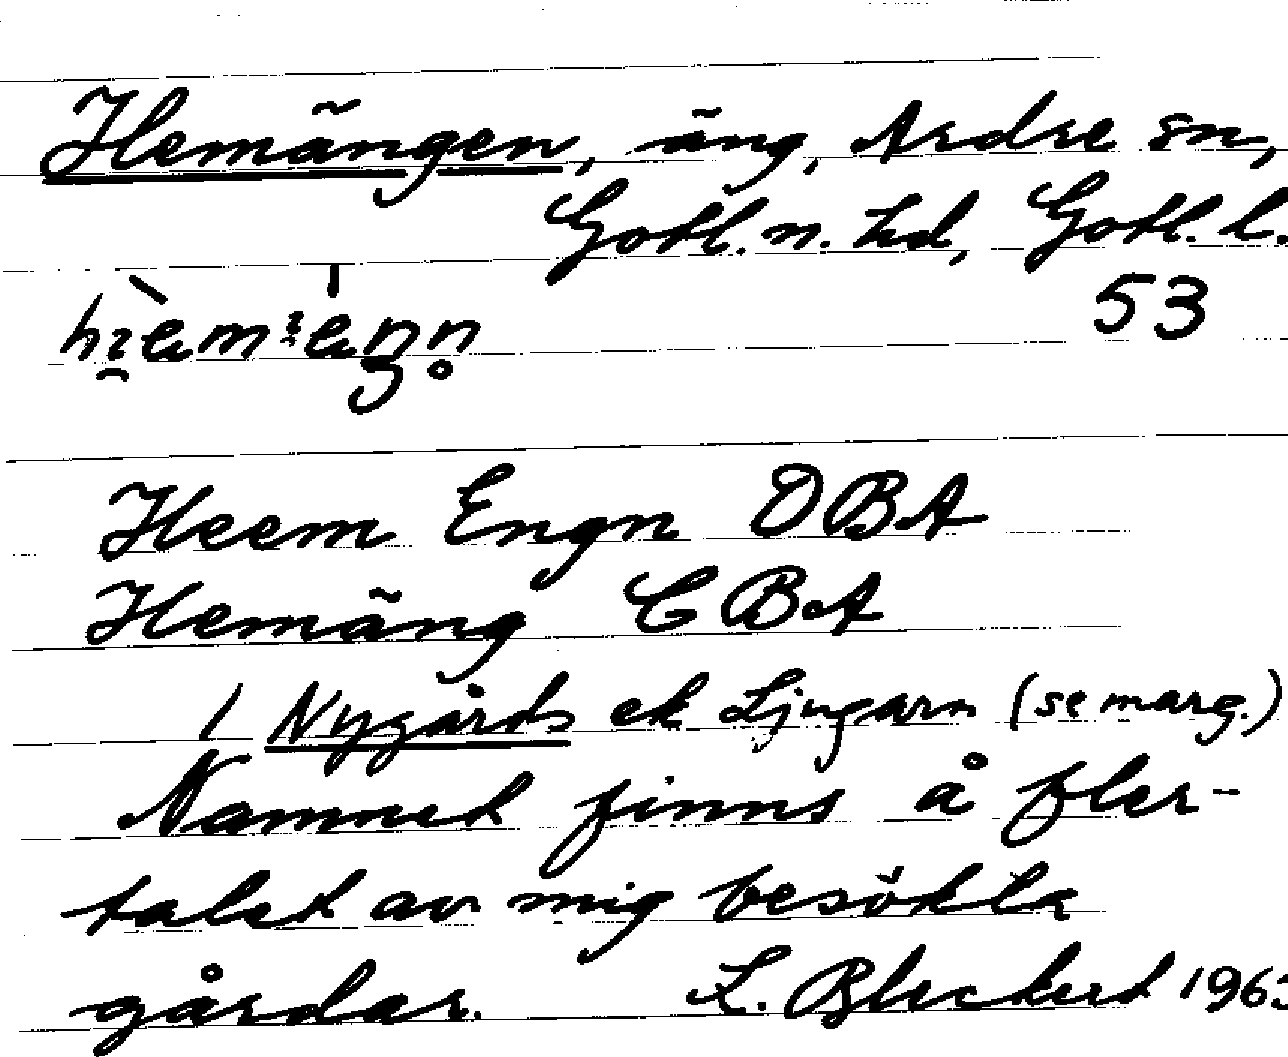 Hemängen, äng, Ardre sn,
Gotl. n. hd, Gotl. l.
53
Heem Engn OBA
Hemäng CBA
1 Nygårds ek Ljugarn (se marg.)
Namnet finns å fler-
talet av mig besökta
gårdar. L. Bleckert 1963